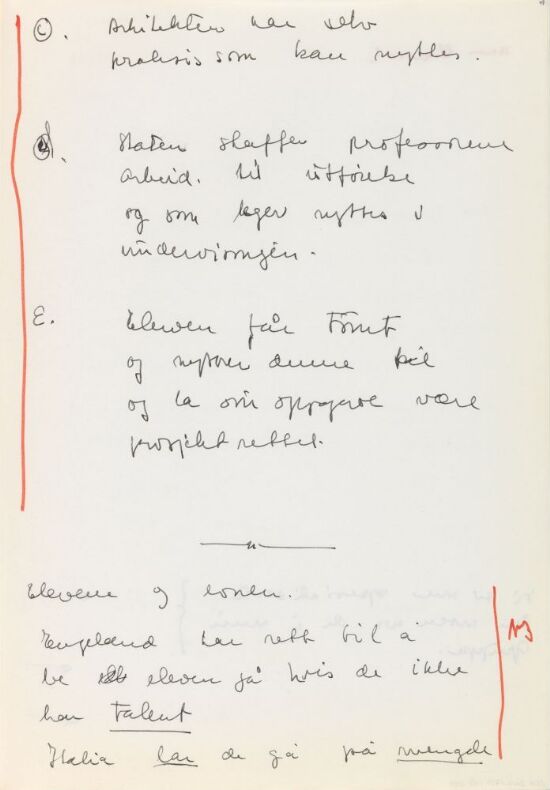 C. Arkitekten har selv
praksis som kan nyttes.
d. Staten skaffer professorene
arbeid. til utførelse
og som nyttes i
undervisningen.
E. Eleven får Tomt
og denne
og la sin oppgave være
prosjekt rettet.
Elevene og
England har rett til å
be eleven gå hvis de ikke
har Talent
Italia lar de gå på mengde
NB